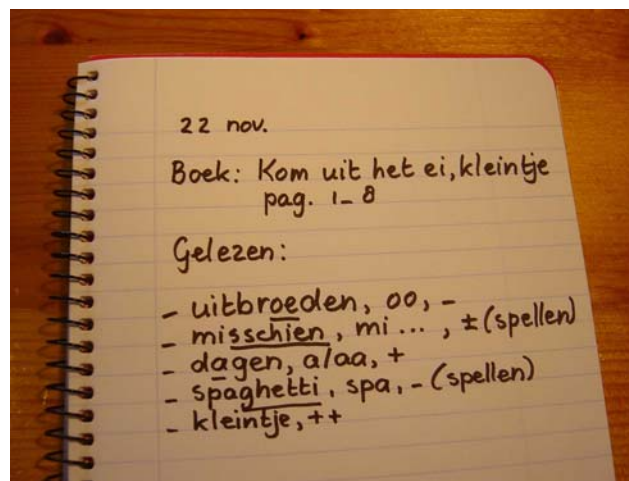 22 nov.
Boek: Kom uit het ei, kleintje
pag. 1-8
Gelezen:
- uitbroeden, oo, -
- misschien, mi..., ± (spellen)
- dagen, a/aa, +
- spaghetti, spa, - (spellen)
- kleintje, ++